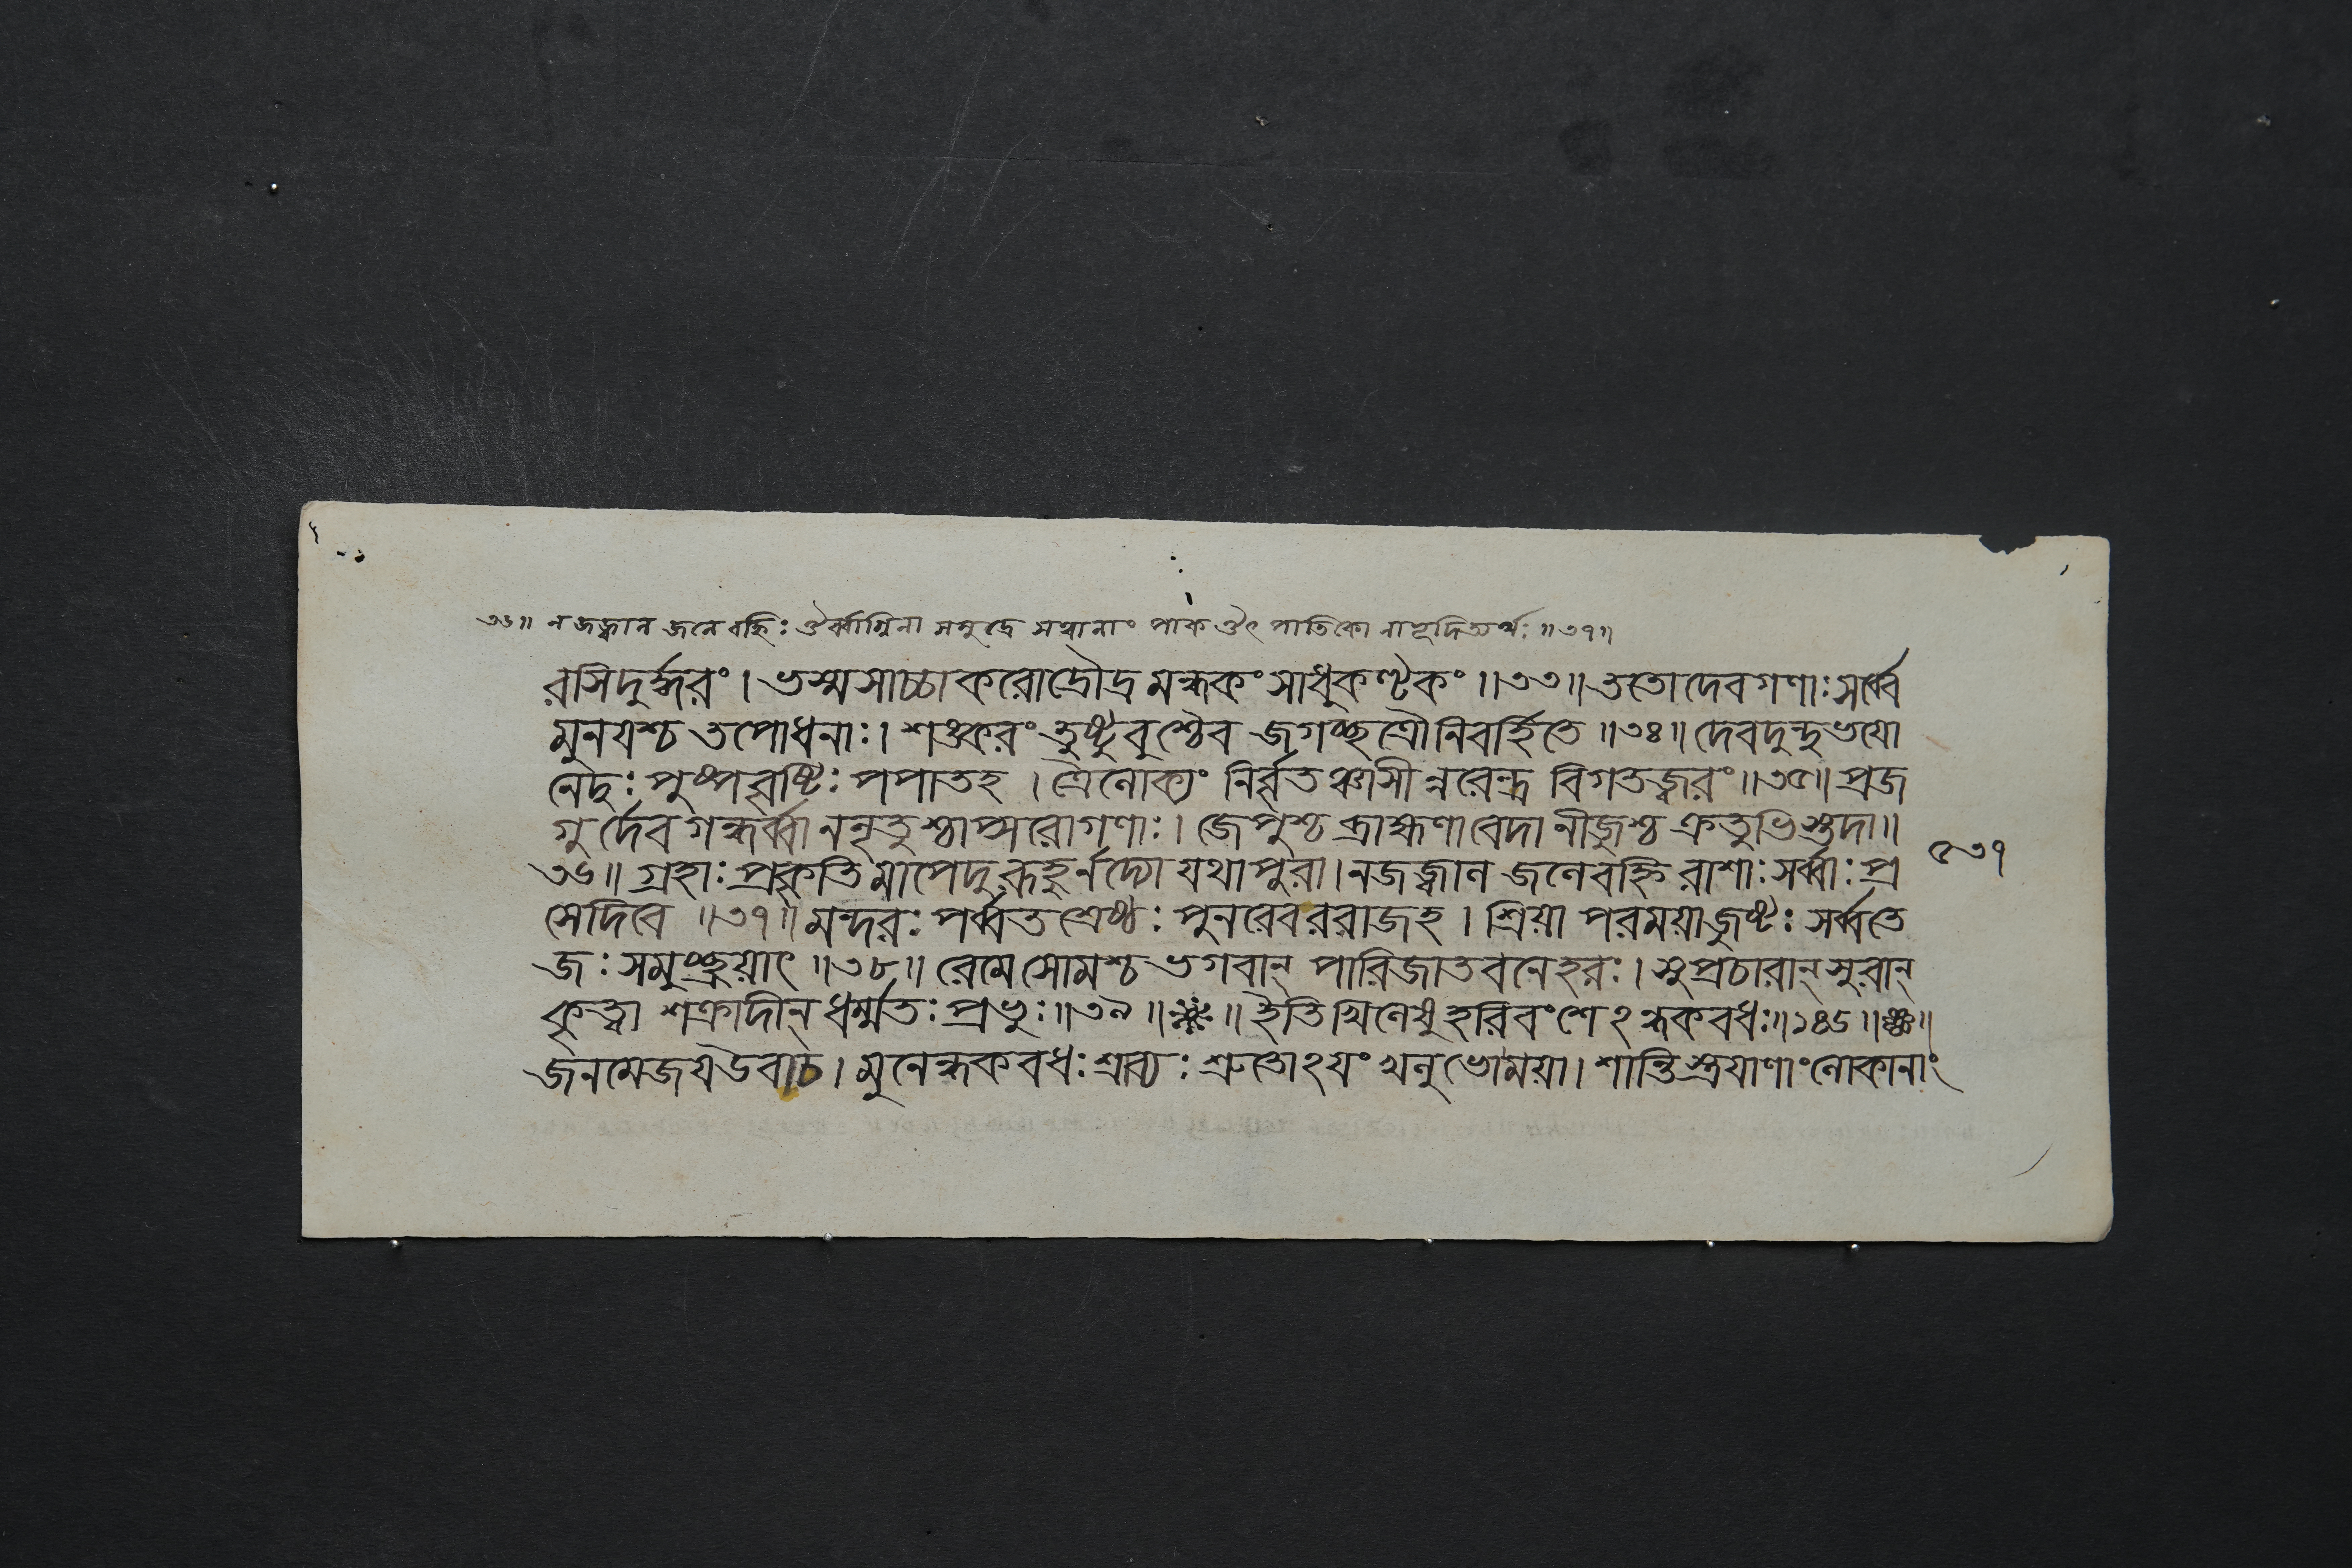 ৩৬॥ ন জজ্বাল জলে বহ্নিঃ ঔর্ব্বাগ্নিনা সমুদ্রে সত্বানাং পাক ঔৎপাতিকো নাভূদিত্যর্থঃ ॥৩৭॥
রসিদুর্দ্ধরং । ভস্মসাচ্চাকরোদ্রৌদ্রমন্ধকং সাধুকণ্টকং ॥৩৩॥ ততো দেবগণাঃ সর্ব্বে
মুনযশ্চ তপোধনাঃ । শঙ্করং তুষ্টুবুশ্চৈব জগচ্ছত্রৌ নিবর্হিতে ॥৩৪॥ দেবদুন্দুভযো
নেদুঃ পুষ্পবৃষ্টিঃ পপাতহ । ত্রৈলোক্যং নির্বৃতঞ্চাসীন্নরেন্দ্র বিগতজ্বরং ॥৩৫॥ প্রজ
গুর্দেবগন্ধর্ব্বা ননৃতুশ্চাপ্সরোগণাঃ । জেপুশ্চ ব্রাহ্মণা বেদানীজুশ্চ ক্রতুভিস্তদা ॥
৩৬॥ গ্রহাঃ প্রকৃতিমাপেদুরূহুর্নদ্যো যথাপুরা । ন জজ্বাল জলে বহ্নিরাশাঃ সর্ব্বাঃ প্র
৫৩৭
সেদিরে ॥৩৭॥ মন্দরঃ পর্ব্বতশ্রেষ্ঠঃ পুনরেব ররাজহ । শ্রিয়া পরময়া জুষ্টঃ সর্ব্বতে
জঃ সমুচ্ছ্রয়াৎ ॥৩৮॥ রেমে সোমশ্চ ভগবান্ পারিজাতবনে হরঃ । সুপ্রচারান্ সুরান্
কৃত্বা শক্রাদীন্ ধর্ম্মতঃ প্রভুঃ ॥৩৯॥ ॥ ইতি খিলেষু হরিবংশেঽন্ধকবধঃ ॥১৪৬॥ ॥
জনমেজয উবাচ । মুনেন্ধকবধঃ শ্রাব্যঃ শ্রুতোঽযং খলু ভো ময়া । শান্তিস্ত্রযাণাং লোকানাং